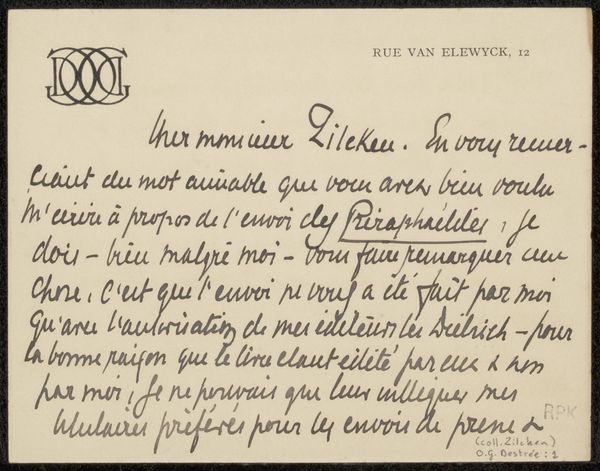 RUE VAN ELEWYCK, 12
Cher monsieur Zilcken. En vous remer-
ciant du mot aimable que vous avez bien voulu
m'écrire à propos de l'envoi des Préraphaélites, je
dois - bien malgré moi - vous faire remarquer une
chose, c'est que l'envoi ne vous a été fait par moi
qu'avec l'autorisation de mes éditeurs les Dietrich - pour
la bonne raison que le livre étant édité par eux & non
par moi, je ne pouvais que leur indiquer mes
titulaires préférés pour les envois de presse &
RPK
(coll. Zilcken)
O.G. Destrée: 1